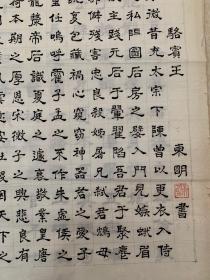 東明書
駱賓王
微昔充太宗下陳曾以更衣入侍
私陰圖后房之嬖入門見嫉蛾眉
主踐元后于翬翟陷吾君于聚麀
邪僻殘害忠良殺姊屠兄弒君鴆母
復包藏禍心窺竊神器君之愛子
重任嗚呼霍子孟之不作朱虛侯之
龍漦帝后識夏庭之遽衰敬業皇唐
荷本朝之厚恩宋微子之興悲良有
安社稷因天下之